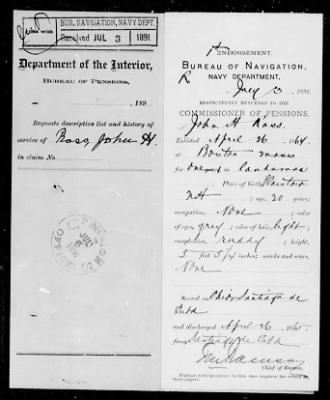 BUR. NAVIGATION, NAVY DEPT.
Received JUL 3 1891
Department of the Interior,
BUREAU OF PENSIONS,
189
Requests descriptive list and history of
service of Ross, John H.
in claim No.
ENDORSEMENT.
BUREAU OF NAVIGATION,
NAVY DEPARTMENT,
R July 3, 1891.
RESPECTFULLY RETURNED TO THE
COMMISSIONER OF PENSIONS.
John H. Ross.
Enlisted April 26 1864
at Boston Mass
for one year as Landsman
Place of birth Plaistow
NH ; age, 20 years;
occupation, None ; color
of eyes grey ; color of hair, light;
complexion, ruddy ; height,
5 feet 5 3/4 inches; scars and marks,
None
Served on Ohio, Santiago de
Cuba
and discharged April 26 1865
from Santiago de Cuba
Chief of Bureau.